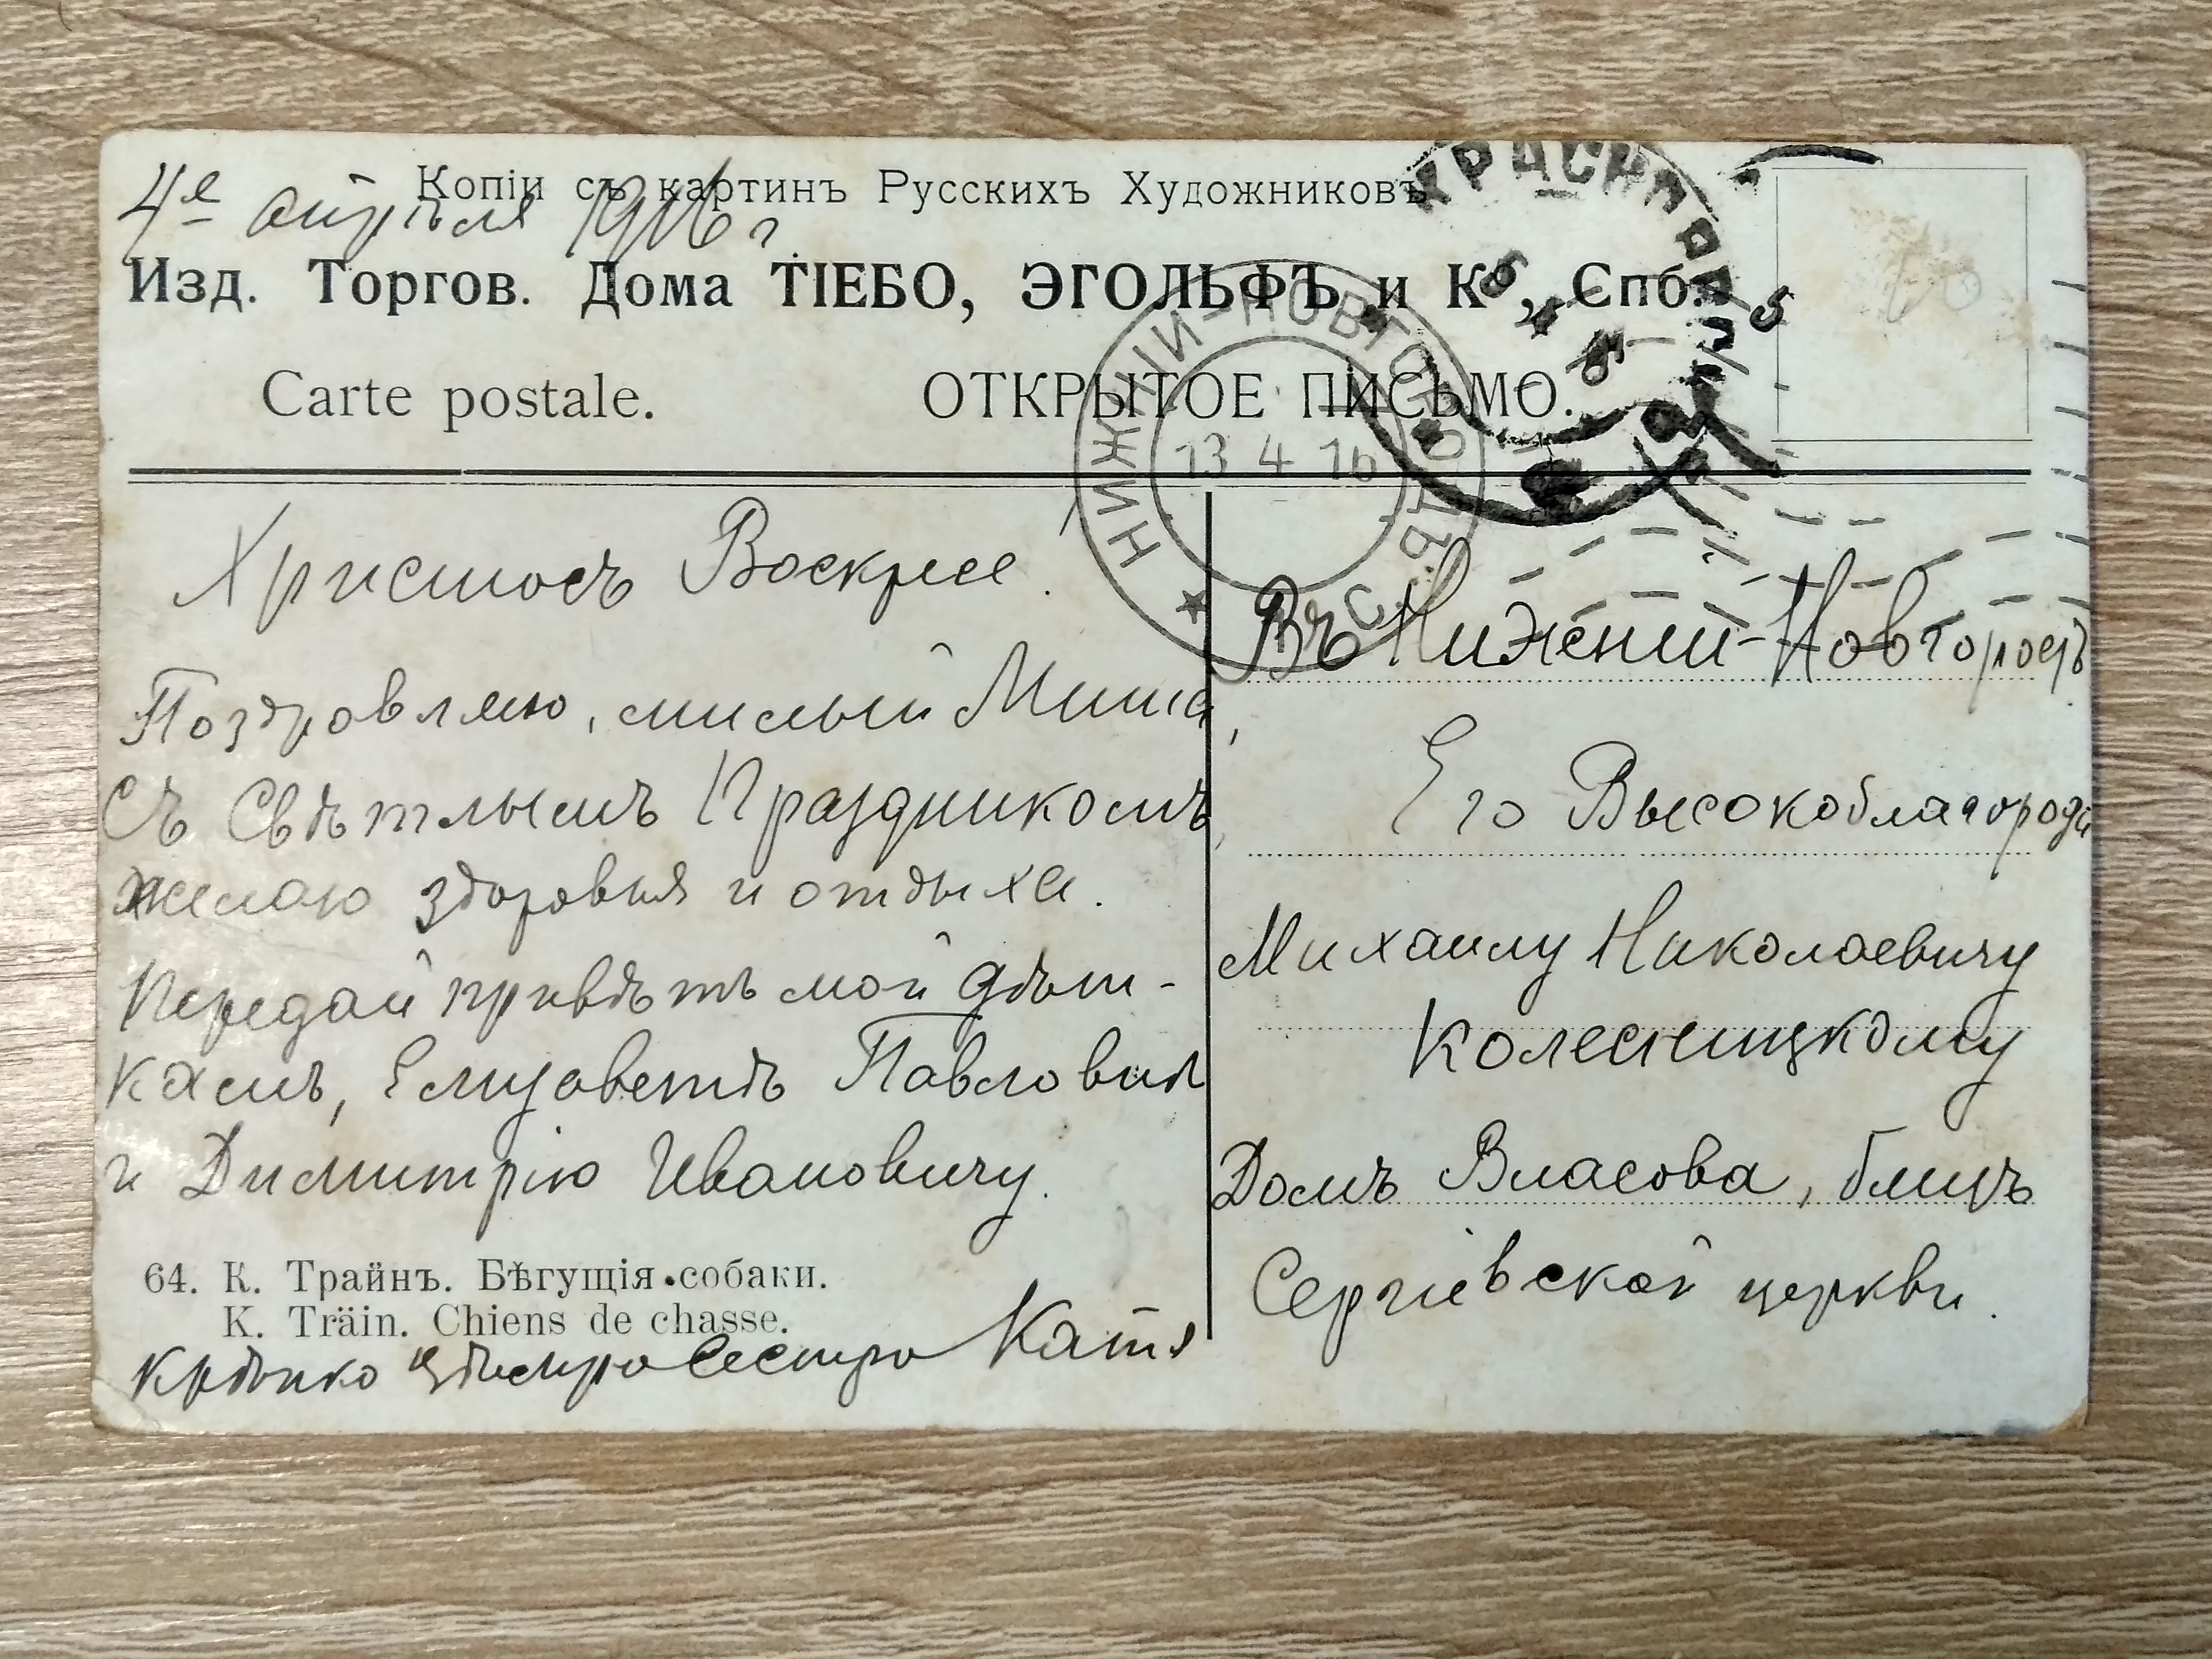 Копіи съ картинъ Русскихъ Художниковъ
4е апрѣля 1916 г
Изд. Торгов. Дома ТІЕБО, ЭГОЛЬФЪ и Ко, Спб.
Carte postale. ОТКРЫТОЕ ПИСЬМО.
НИЖНІЙ-НОВГОРОДЪ
13 4 16
Христосъ Воскресе!
Поздровляю, милый Миша,
Съ Свѣтлымъ Праздникомъ,
желаю здоровья и отдыха.
Передай привѣтъ мой дѣт-
камъ, Елизаветѣ Павловнѣ
и Димитрію Ивановичу.
64. К. Трайнъ. Бѣгущія собаки.
K. Träin. Chiens de chasse.
Крѣпко Сестра Катя
Въ Нижний-Новгородъ
Его Высокоблагородію
Михаилу Николаевичу
Колесницкому
Домъ Власова, близъ
Сергіевской церкви.